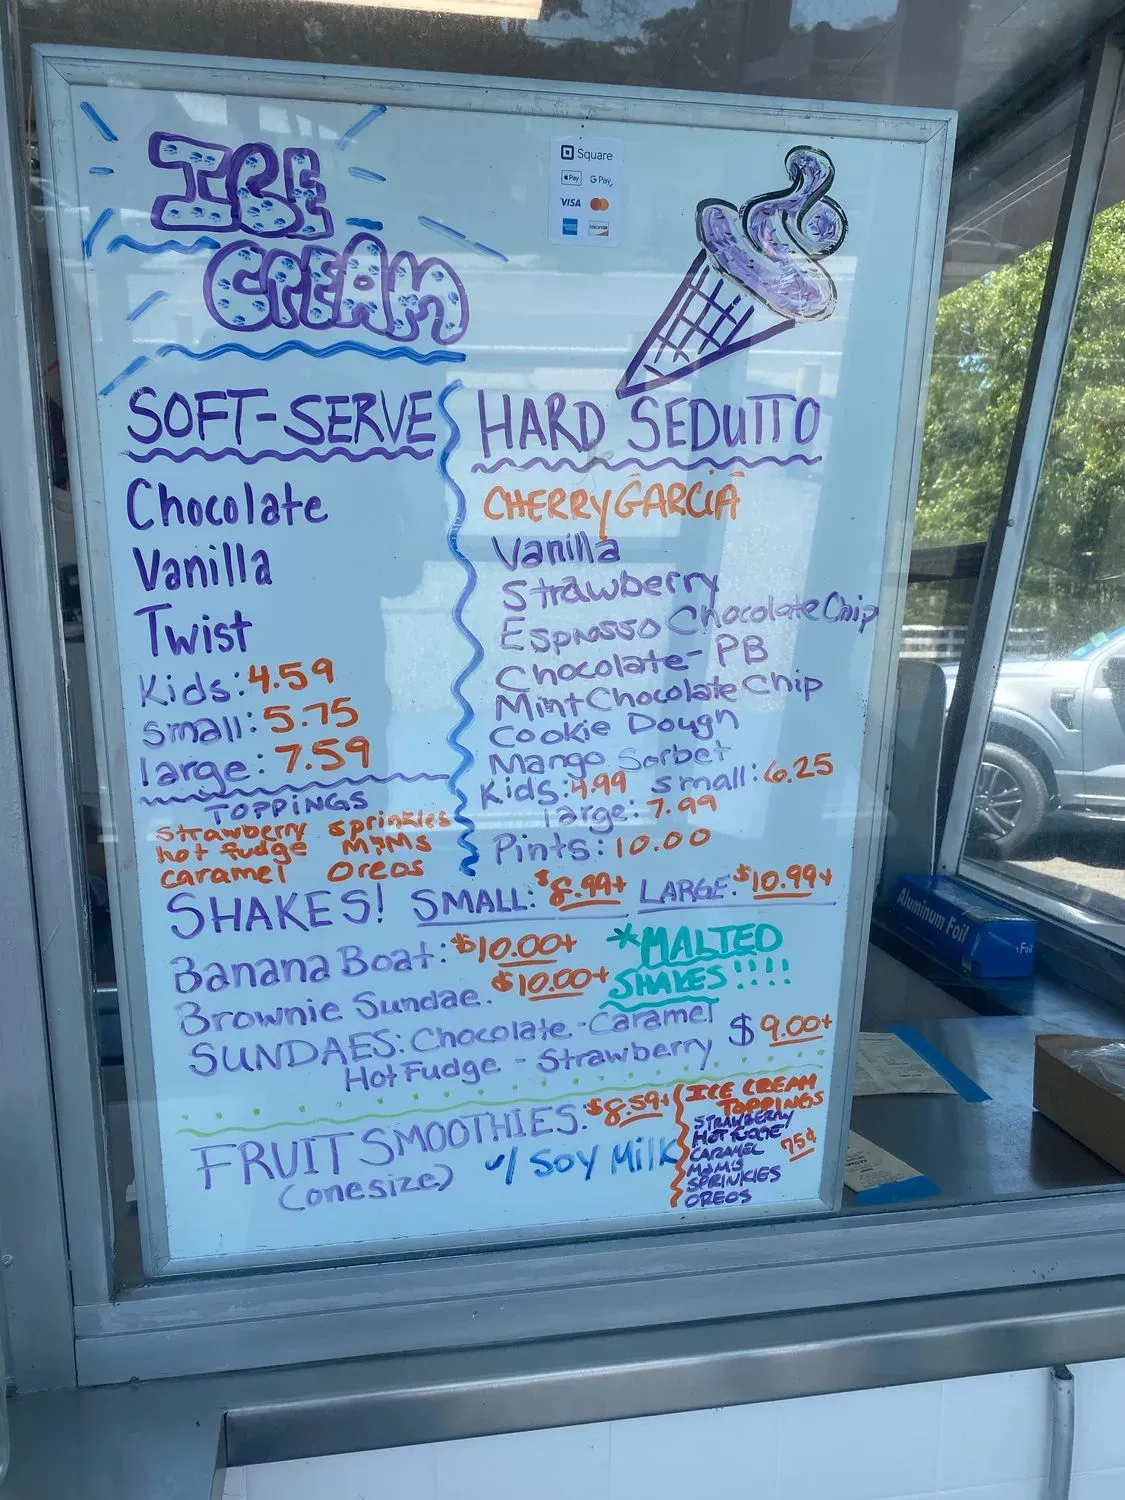 ICE
CREAM
Square
Pay
G Pay
VISA
DISCOVER
SOFT-SERVE
Chocolate
Vanilla
Twist
Kids: 4.59
small: 5.75
large: 7.59
TOPPINGS
strawberry sprinkles
hot fudge M&Ms
caramel Oreos
HARD SEDUTTO
CHERRY GARCIA
Vanilla
Strawberry
Espresso Chocolate Chip
Chocolate- PB
Mint Chocolate Chip
Cookie Dough
Mango Sorbet
Kids: 4.99 small: 6.25
large: 7.99
Pints: 10.00
SHAKES! SMALL: $8.99+ LARGE: $10.99+
Banana Boat: $10.00+
Brownie Sundae: $10.00+
*MALTED
SHAKES!!!!
SUNDAES: Chocolate - Caramel
Hot Fudge - Strawberry $9.00+
FRUIT SMOOTHIES: $8.59+
(one size) w/ Soy Milk
ICE CREAM
TOPPINGS
STRAWBERRY
HOT FUDGE
CARAMEL 75¢
M&M'S
SPRINKLES
OREOS
Aluminum Foil
Foil